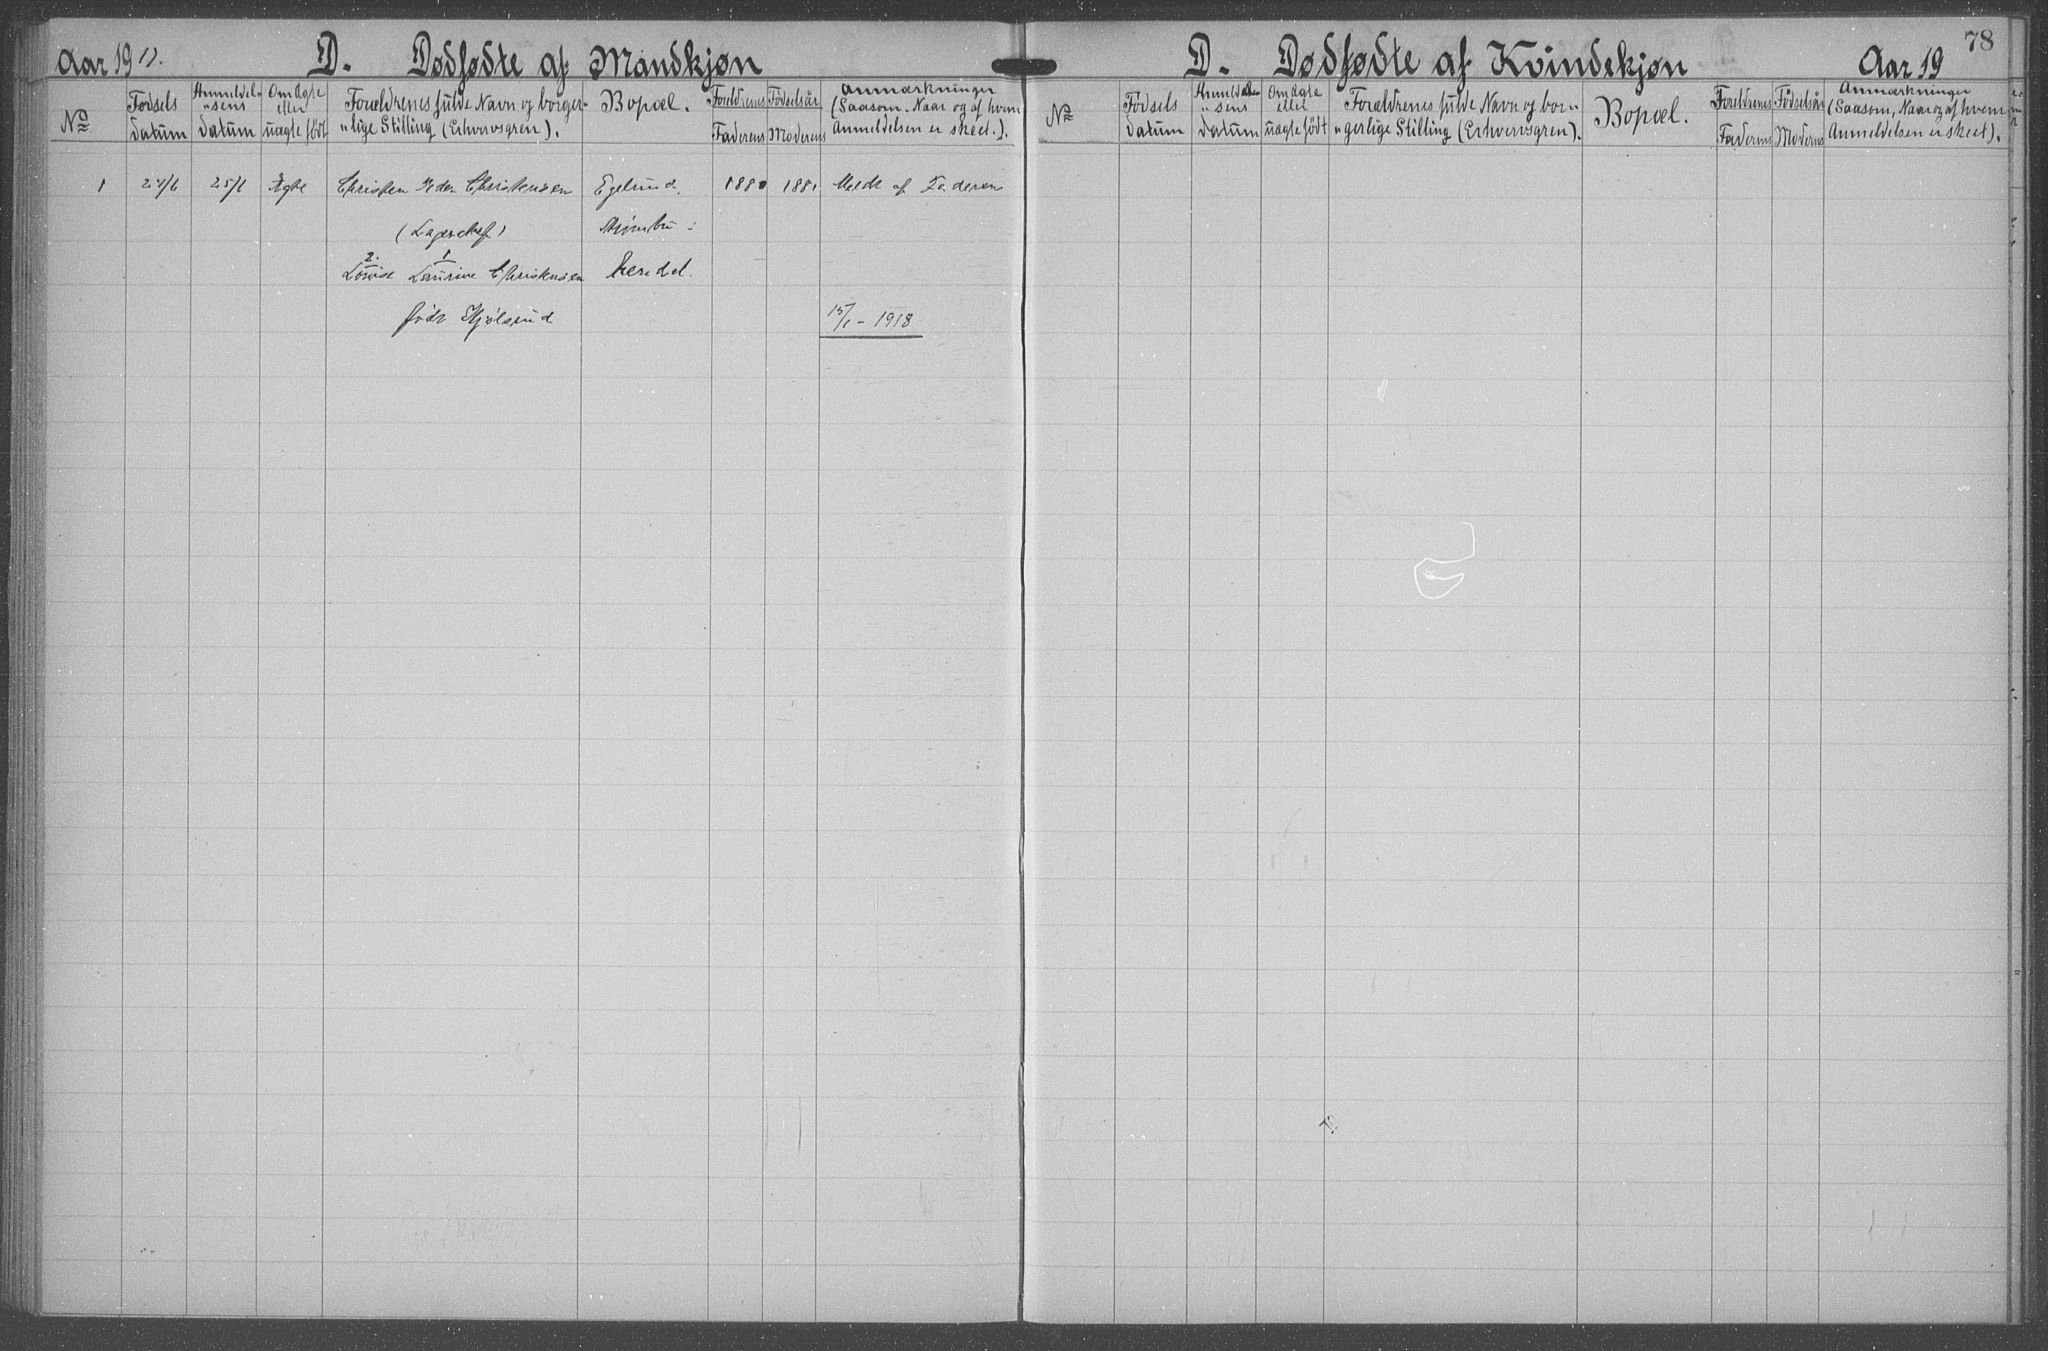 Aar 1917.
D. Dødfødte af Mandkjøn
No
Fødsels datum
Anmeldel„sens datum
Om Ægte eller uægte født
Forældrenes fulde Navn og borger„lige Stilling (Erhvervsgren).
Bopæl.
Foreldrenes Fødselsår
Faderens Moderens
Anmærkninger (Saasom. Naar og af hvem Anmeldelsen er skeet.).
1 24/6 25/6 Ægte Christen Peder Christensen Egelund. 1880 1881 Meldt af Faderen
(Lagerchef)
2. 1
Lovise Laurine Christensen
født Kjølsrud 15/1 - 1918
78
D. Dødfødte af Kvindekjøn
Aar 19
No
Fødsels datum
Anmeldel„sens datum
Om Ægte eller uægte født
Forældrenes fulde Navn og bor„gerlige Stilling (Erhvervsgren).
Bopæl.
Foreldrenes Fødselsår
Faderens Moderens
Anmærkninger (Saasom, Naar og af hvem Anmeldelsen er skeet).